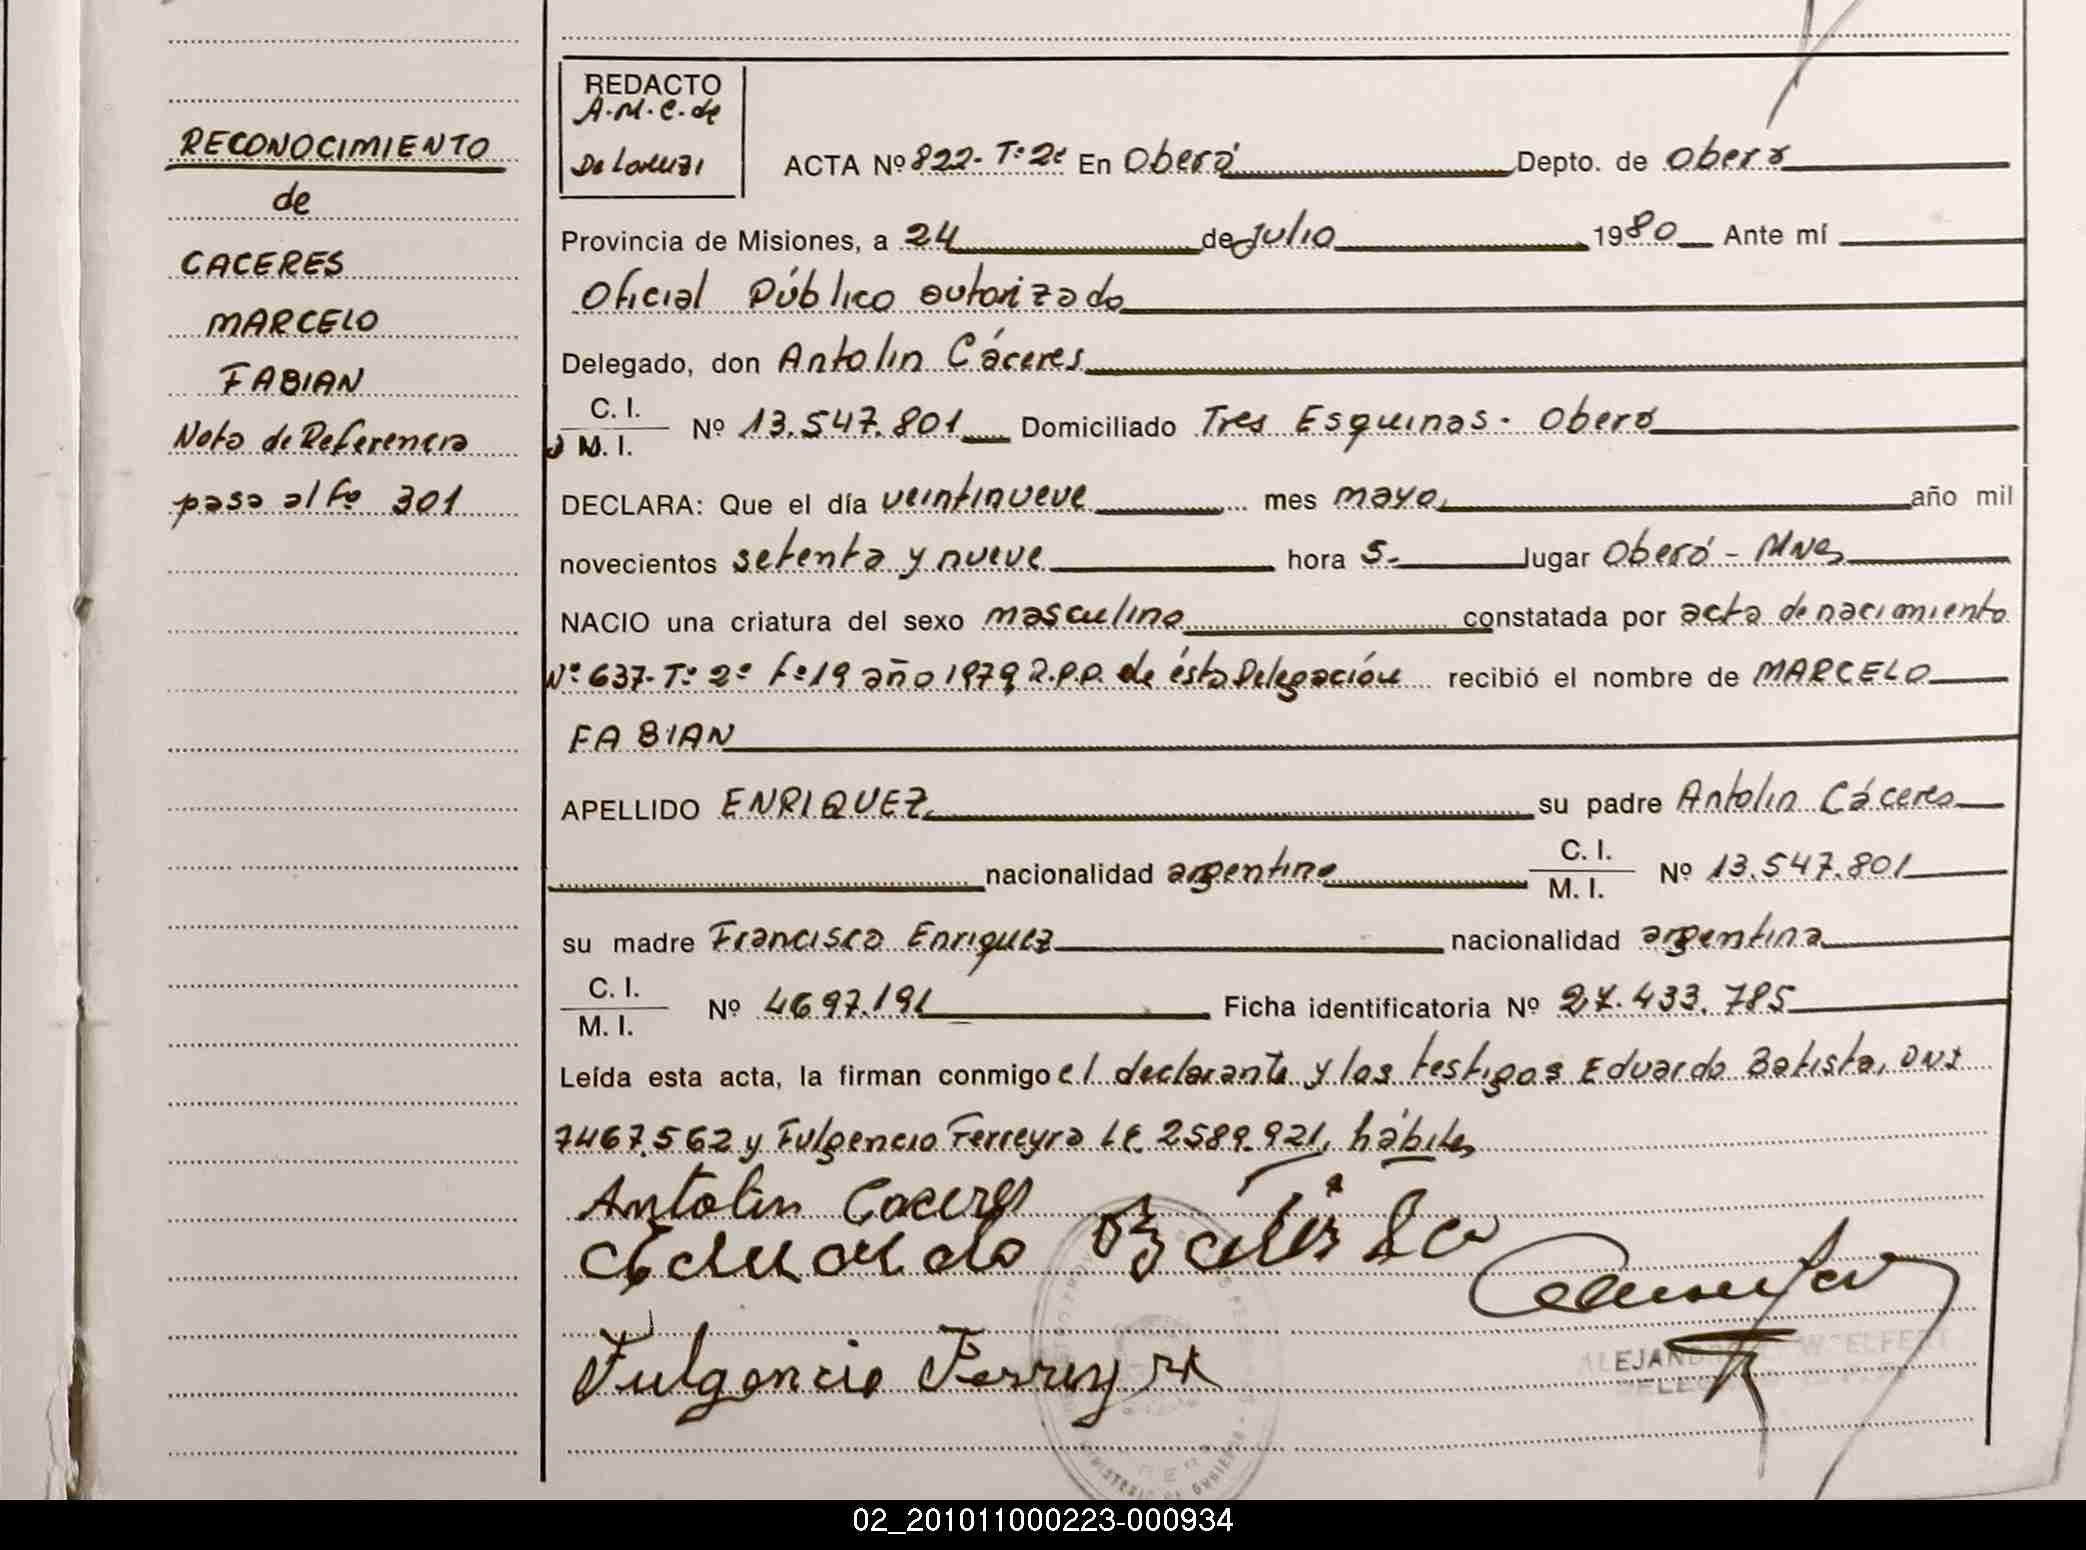 RECONOCIMIENTO
de
CACERES
MARCELO
FABIAN
Nota de Referencia
pasa al Fº 301
REDACTO
A.M.C. de
De Lorenzi
ACTA Nº 822- Tº 2º En Oberá Depto. de Oberá
Provincia de Misiones, a 24 de julio 1980 Ante mí
Oficial Público autorizado
Delegado, don Antolin Cáceres
C. I.
M. I. Nº 13.547.801 Domiciliado Tres Esquinas - Oberá
DECLARA: Que el día veintinueve mes mayo, año mil
novecientos setenta y nueve hora 5- lugar Oberá - Mnes
NACIO una criatura del sexo masculino constatada por acta de nacimiento
Nº 637- Tº 2º Fº 19 año 1979 R.P.P. de ésta Delegación recibió el nombre de MARCELO
FABIAN
APELLIDO ENRIQUEZ su padre Antolin Cáceres
nacionalidad argentino C. I.
M. I. Nº 13.547.801
su madre Francisca Enriquez nacionalidad argentina
C. I.
M. I. Nº 4697.191 Ficha identificatoria Nº 27.433.785
Leída esta acta, la firman conmigo el declarante y los testigos Eduardo Batista, DNI
7467.562 y Fulgencio Ferreyra LE 2589.921, hábiles
Antolin Caceres
Eduardo Batista
Fulgencio Ferreyra
02_201011000223-000934